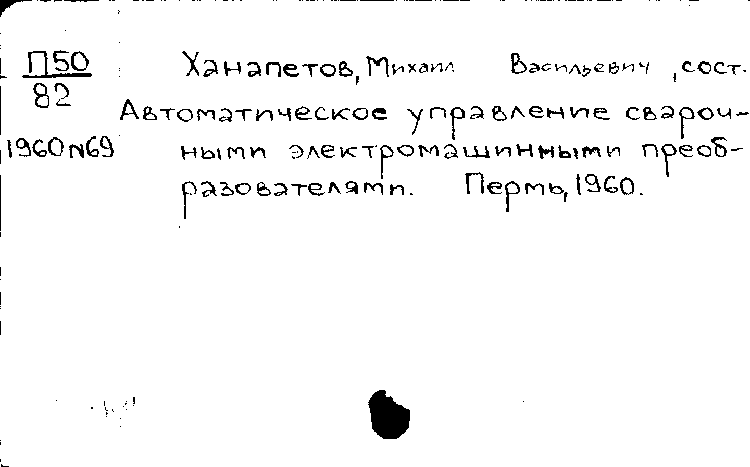 П50 Ханапетов, Михаил Васильевич, сост.
82
Автоматическое управление свароч-
1960 N69 ными электромашинными преоб-
разователями. Пермь, 1960.